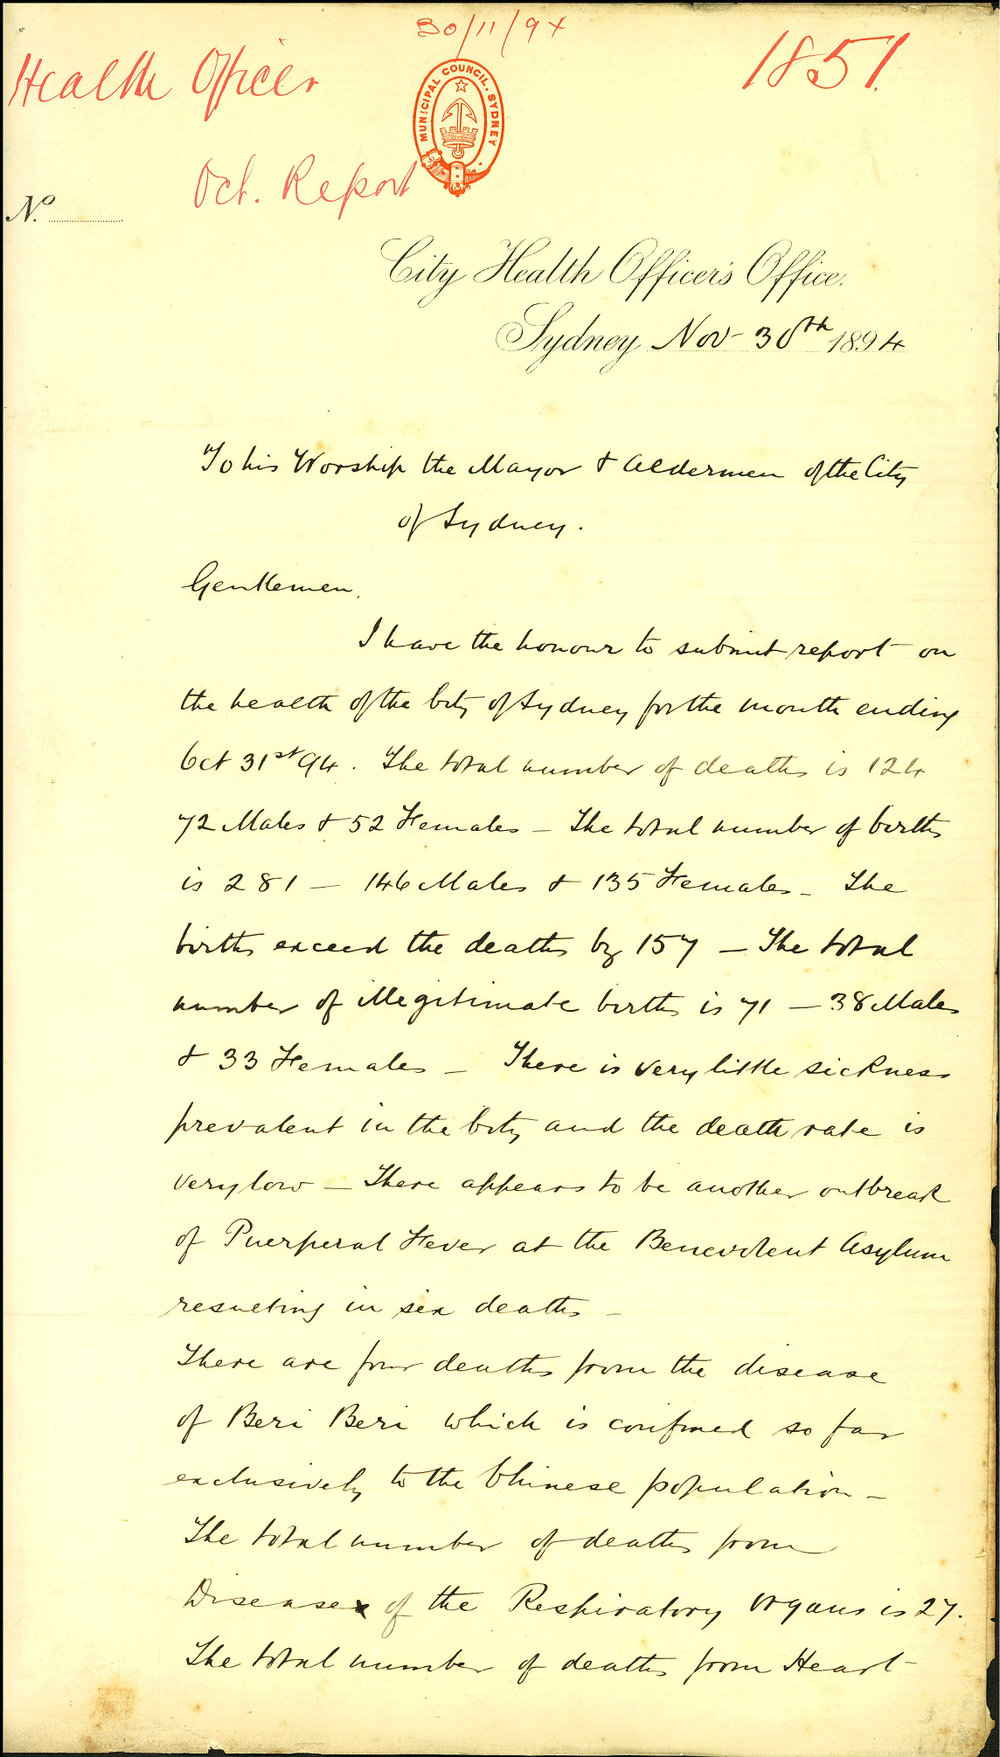 30/11/94
Health Officer
1851.
MUNICIPAL COUNCIL. SYDNEY
Oct. Report
No.
City Health Officer's Office.
Sydney Nov 30th 1894
To his Worship the Mayor & Aldermen of the City
of Sydney.
Gentlemen.
I have the honour to submit report on
the health of the City of Sydney for the month ending
Oct 31st 94. The total number of deaths is 124
72 Males & 52 Females — The total number of births
is 281 — 146 Males & 135 Females — The
births exceed the deaths by 157 — The total
number of illegitimate births is 71 — 38 Males
& 33 Females — There is very little sickness
prevalent in the City and the death rate is
very low — There appears to be another outbreak
of Puerperal Fever at the Benevolent Asylum
resulting in six deaths —
There are four deaths from the disease
of Beri Beri which is confined so far
exclusively to the Chinese population —
The total number of deaths from
Diseases of the Respiratory organs is 27.
The total number of deaths from Heart